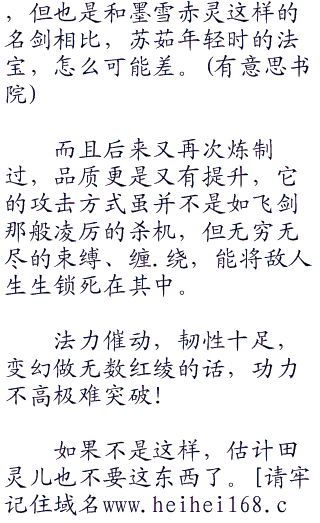 ，但也是和墨雪赤灵这样的
名剑相比，苏茹年轻时的法
宝，怎么可能差。(有意思书
院)
而且后来又再次炼制
过，品质更是又有提升，它
的攻击方式虽并不是如飞剑
那般凌厉的杀机，但无穷无
尽的束缚、缠.绕，能将敌人
生生锁死在其中。
法力催动，韧性十足，
变幻做无数红绫的话，功力
不高极难突破!
如果不是这样，估计田
灵儿也不要这东西了。[请牢
记住域名www.heihei168.c